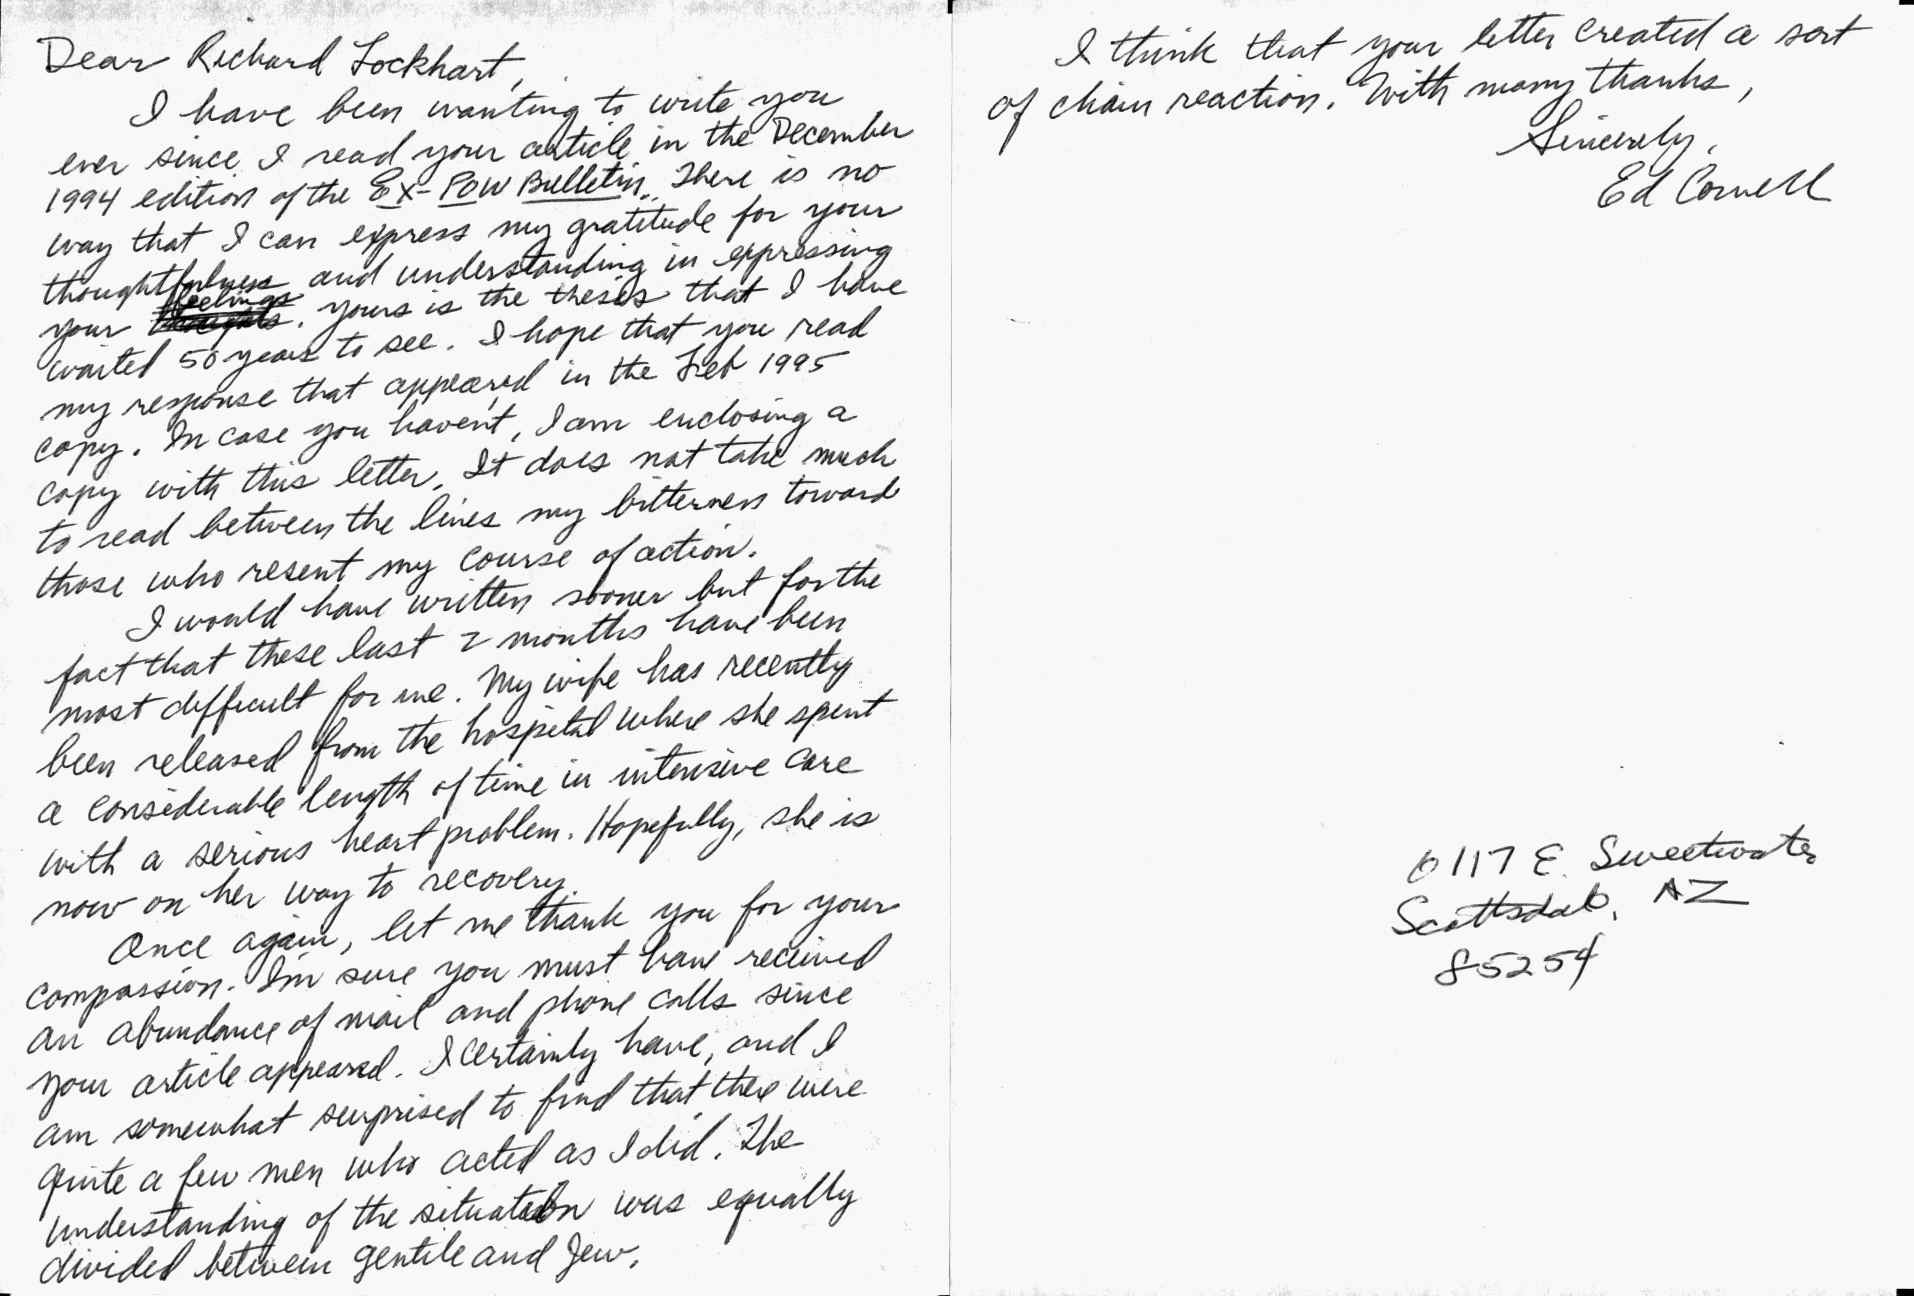 Dear Richard Lockhart,
I have been wanting to write you
ever since I read your article in the December
1994 edition of the Ex-POW Bulletin. There is no
way that I can express my gratitude for your
thoughtfulness and understanding in expressing
your feelings. Yours is the thesis that I have
waited 50 years to see. I hope that you read
my response that appeared in the Feb 1995
copy. In case you haven't, I am enclosing a
copy with this letter. It does not take much
to read between the lines my bitterness toward
those who resent my course of action.
I would have written sooner but for the
fact that these last 2 months have been
most difficult for me. My wife has recently
been released from the hospital where she spent
a considerable length of time in intensive care
with a serious heart problem. Hopefully, she is
now on her way to recovery.
Once again, let me thank you for your
compassion. I'm sure you must have received
an abundance of mail and phone calls since
your article appeared. I certainly have, and I
am somewhat surprised to find that there were
quite a few men who acted as I did. The
understanding of the situation was equally
divided between gentile and Jew.
I think that your letter created a sort
of chain reaction. With many thanks,
Sincerely,
Ed Cornell
6117 E. Sweetwater
Scottsdale, AZ
85254